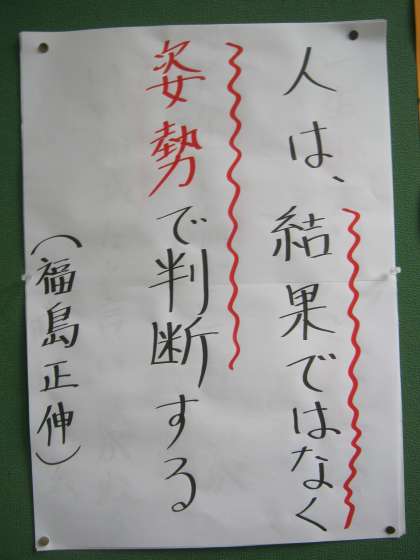 人は、結果ではなく
姿勢で判断する
（福島正伸）